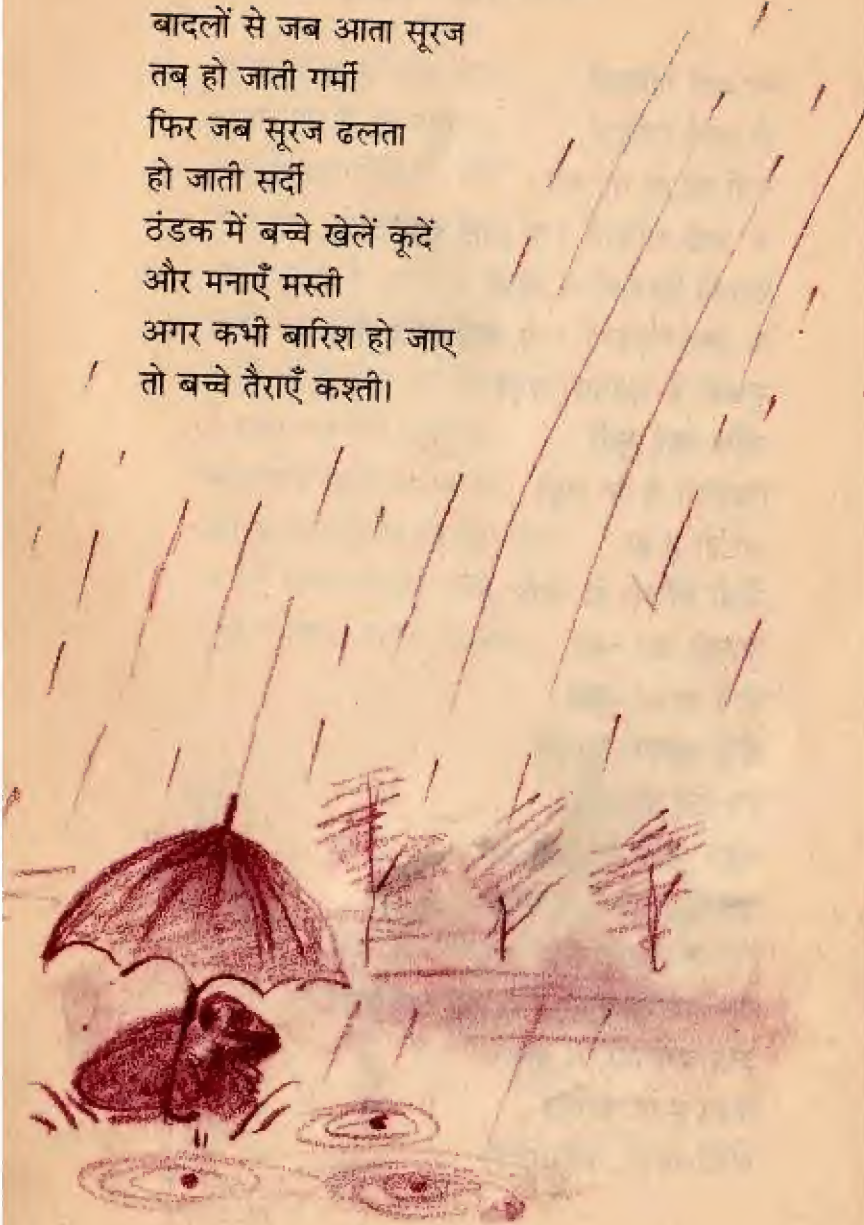 बादलों से जब आता सूरज
तब हो जाती गर्मी
फिर जब सूरज ढलता
हो जाती सर्दी
ठंडक में बच्चे खेलें कूदें
और मनाएँ मस्ती
अगर कभी बारिश हो जाए
तो बच्चे तैराएँ कश्ती।